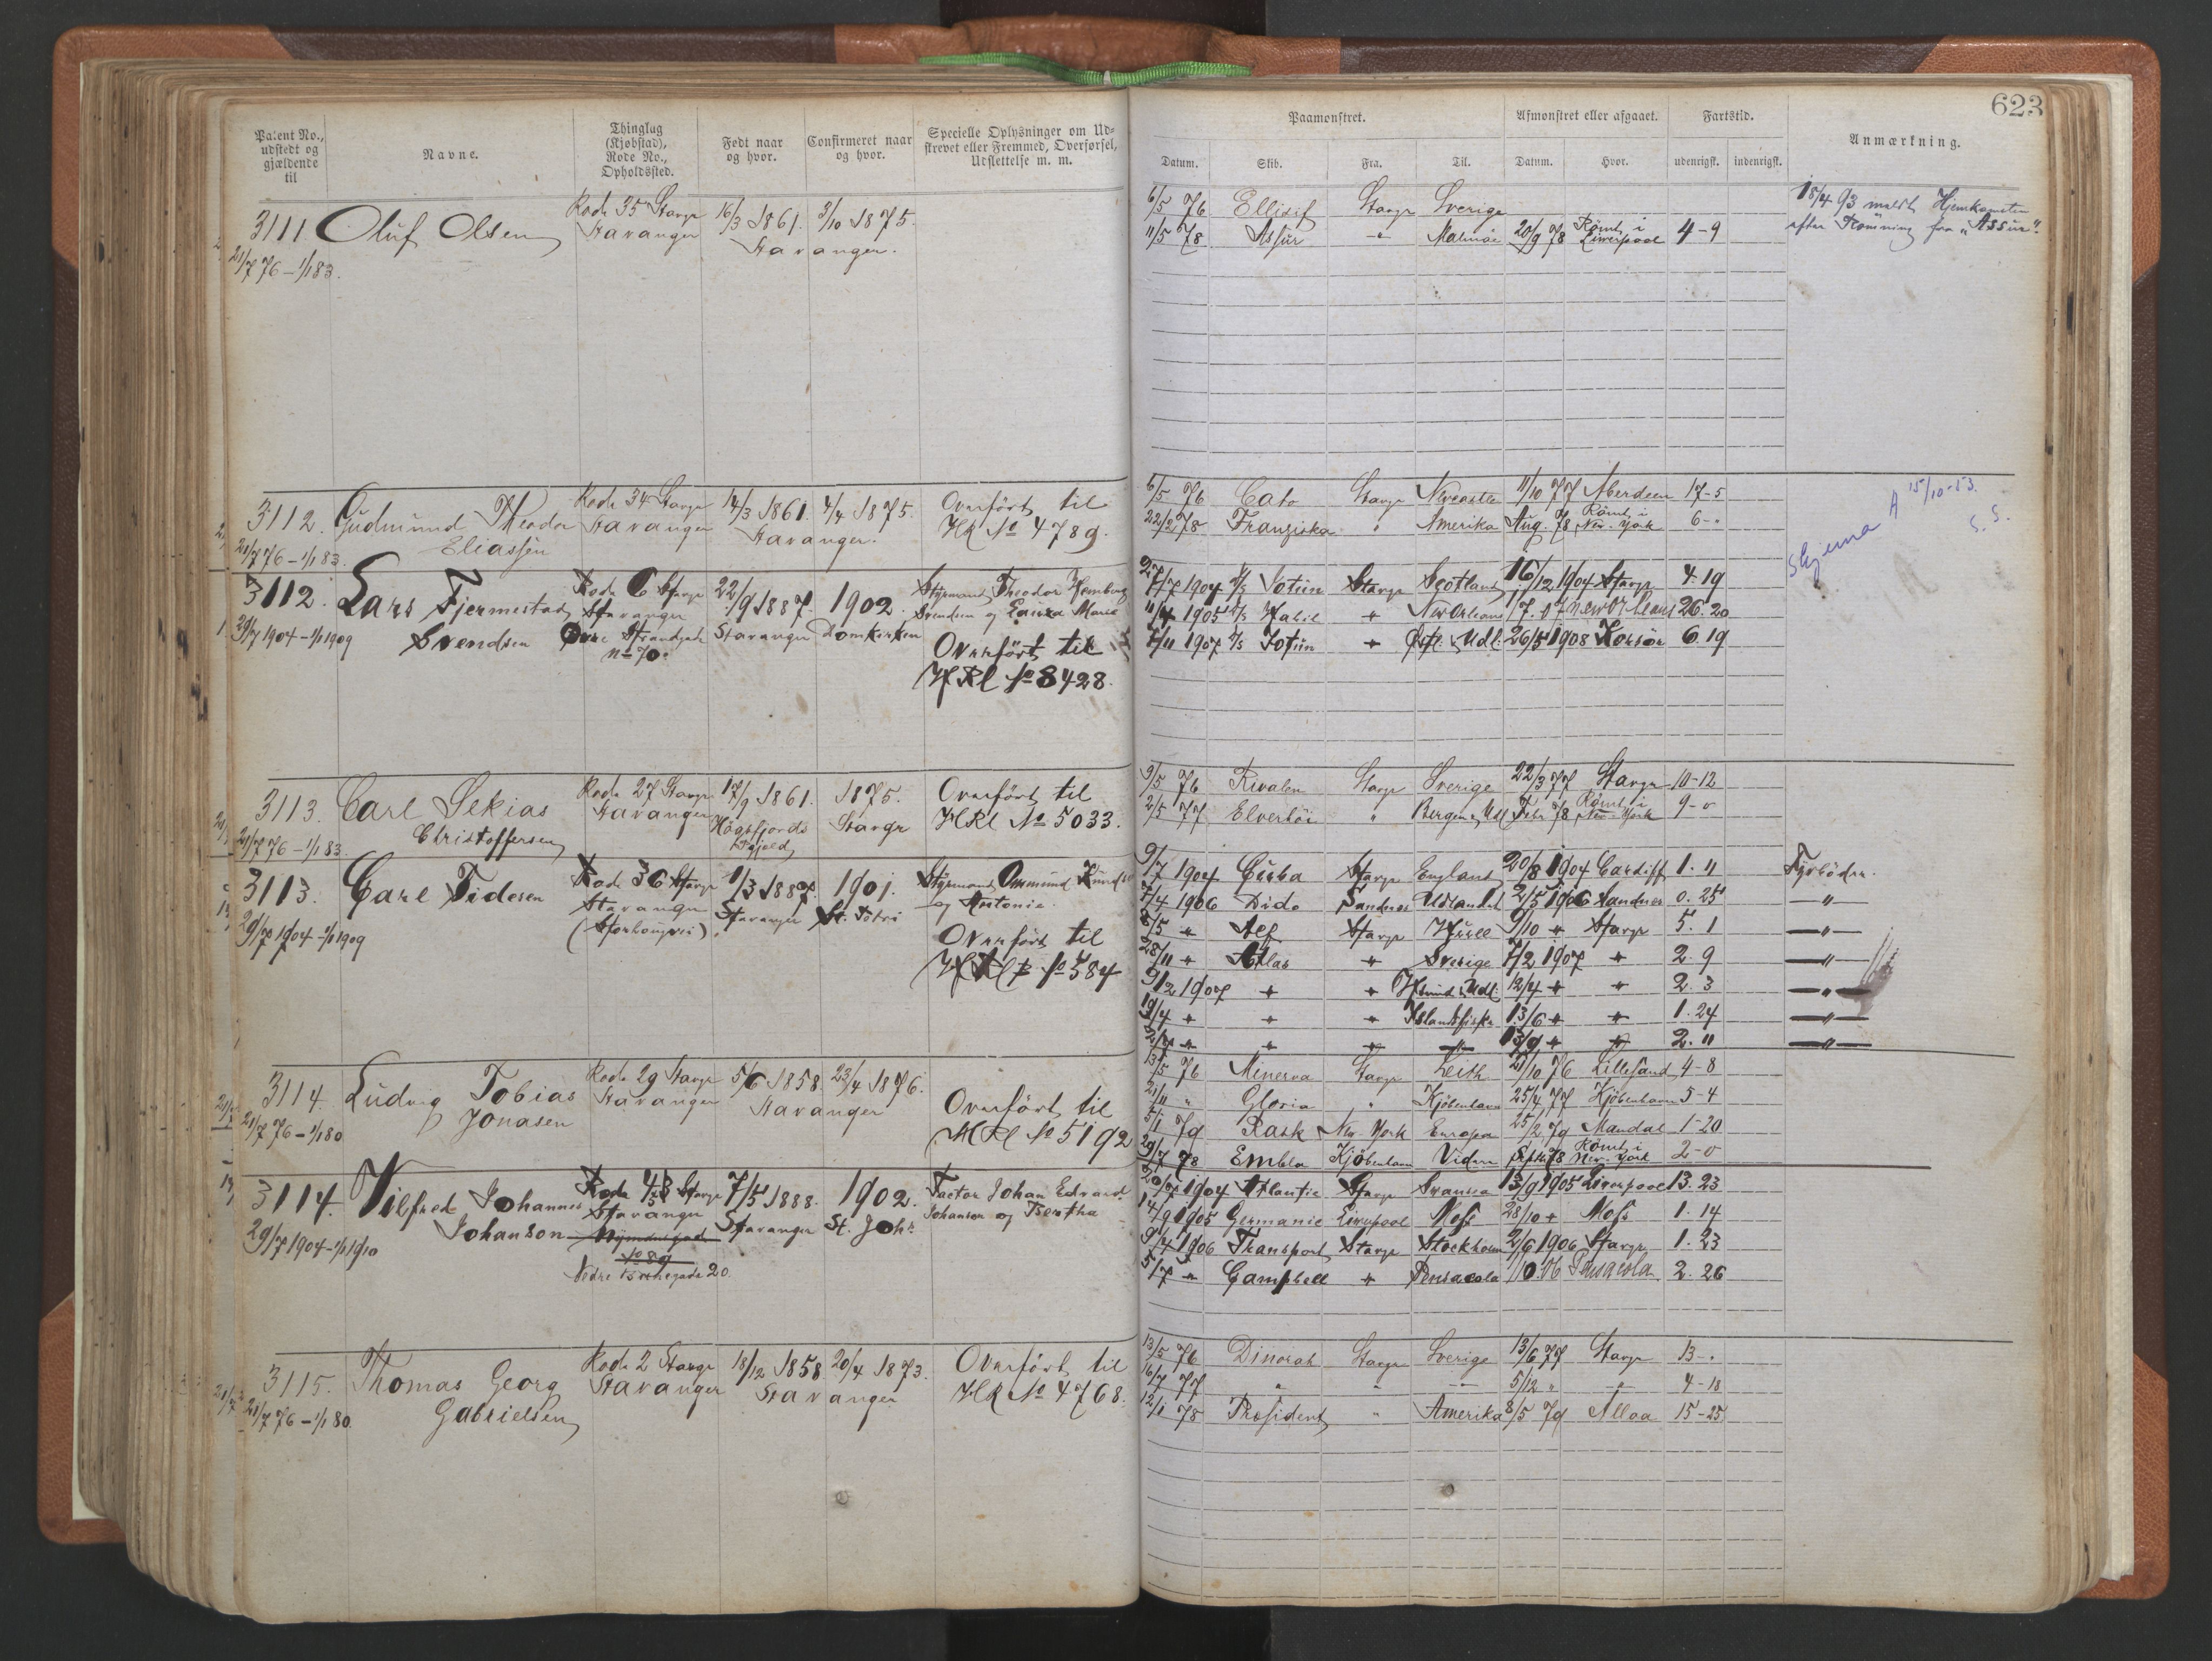 623
Patent No., udstedt og gjældende til
Navne.
Thinglag (Kjøbstad), Rode No., Opholdssted.
Født naar og hvor.
Confirmeret naar og hvor.
Specielle Oplysninger om Udskrevet eller Fremmed, Overførsel, Udslettelse m. m.
Paamønstret.
Afmønstret eller afgaaet.
Fartstid.
Anmærkning.
Datum. Skib. Fra. Til. Datum. Hvor. udenrigsk. indenrigsk.
3111 Oluf Olsen Rode 35 Stavgr 16/3 1861. 3/10 1875.
Stavanger Stavanger.
21/7 76 – 1/1 83.
6/5 76 Ellisif Stavgr Sverige
11/5 78 Assur " Malmöe 20/9 78 Römt i Liverpool 4-9
18/4 93 meldt Hjemkommen
efter Römning fra "Assur".
3112. Gudmund Theodor Rode 34 Stavgr 14/3 1861. 4/4 1875. Overfört til
Eliassen Stavanger Stavanger. HR No 4789.
21/7 76 – 1/1 83.
6/5 76 Cato Stavgr Newcastle 11/10 77 Aberdeen 17-5
22/2 78 Franziska " Amerika Aug. 78 Römt i New-York 6-"
Skjema A 15/10-53.
S. S.
3112. Lars Tjermestad Rode 6 Stavgr 22/9 1887. 1902. Styrmand Theodor
Svendsen Stavanger Stavanger Domkirken Svendsen og Laura Marie
29/7 1904 – 1/1 1909 Øvre Strandgade No 70.
Overfört til
HRl No 8428.
1904 Scotland 16/12 1904 Stavgr 4.19
11/4 1905 " New Orleans 26.20
1/11 1907 Jotun " 26/5 1908 Korsör 6.19
3113. Carl Sekias Rode 27 Stavgr 17/9 1861. 1875. Overfört til
Christoffersen Stavanger Högsfjords Stavgr HRl No 5033.
21/7 76 – 1/1 83.
9/5 76 Rivalen Stavgr Sverige 22/3 77 Stavgr 10-12
2/5 77 Elverhöi " Bergen & Udl Febr 78 Römt i New-York 9-0
3113. Carl Tidesen Rode 36 Stavgr 1/3 1887. 1901. Styrmand
Stavanger Stavanger St. Petri
29/7 1904 – 1/1 1909
Overfört til
No 584
9/7 1904 Cuba Stavgr England 20/8 1904 Cardiff 1.11 Fyrböder.
7/4 1906 Dido Sandnes Udlandet 2/5 1906 Sandnes 0.25 – " –
8/5 " Alf Stavgr Hull 9/10 " Stavgr 5.1 – " –
28/11 " Atlas " Sverige 7/2 1907 " 2.9 – " –
9/2 1907 " " 12/4 " " 2.3 – " –
19/4 " " " Islandsfiske 13/6 " " 1.24 – " –
" " " " 13/9 " " 2.11 – " –
3114. Ludvig Tobias Rode 29 Stavgr 5/6 1858 23/4 1876. Overfört til
Jonasen Stavanger Stavanger HRl No 5192
21/7 76 – 1/1 80
13/5 76 Minerva Stavgr Leith 21/10 76 Lillesand 4-8
21/11 " Gloria " Kjöbenhavn 25/4 77 Kjöbenhavn 5-4
5/1 79 Rask New-York Europa 25/2 79 Mandal 1-20
29/7 78 Embla Kjöbenhavn Videre Septb 78 Römt i New-York 2-0
3114. Vilfred Johannes Rode 43 Stavgr 7/5 1888. 1902. Factor Johan Edvard
Johanson Stavanger Stavanger St. Johs Johanson og Bertha
29/7 1904 – 1/1 1910
No 89
Nedre 20.
20/7 1904 Atlantic Stavgr Swansea 13/9 1905 Liverpool 13.23
14/9 1905 Germanic Liverpool Moss 28/10 " Moss 1.14
9/4 1906 Transport Stavgr Stockholm 2/6 1906 Stavgr 1.23
5/7 " Campbell " Pensacola 1/10.06 Pensacola 2.26
3115. Thomas Georg Rode 2 Stavgr 18/12 1858 20/4 1873. Overfört til
Gabrielsen Stavanger Stavanger HR No 4768.
21/7 76 – 1/1 80.
13/5 76 Dinorah Stavgr Sverige 13/6 77 Stavgr 13-"
16/7 77 " " " 5/12 " " 4-18
12/1 78 Præsident " Amerika 8/5 79 Alloa 15-25